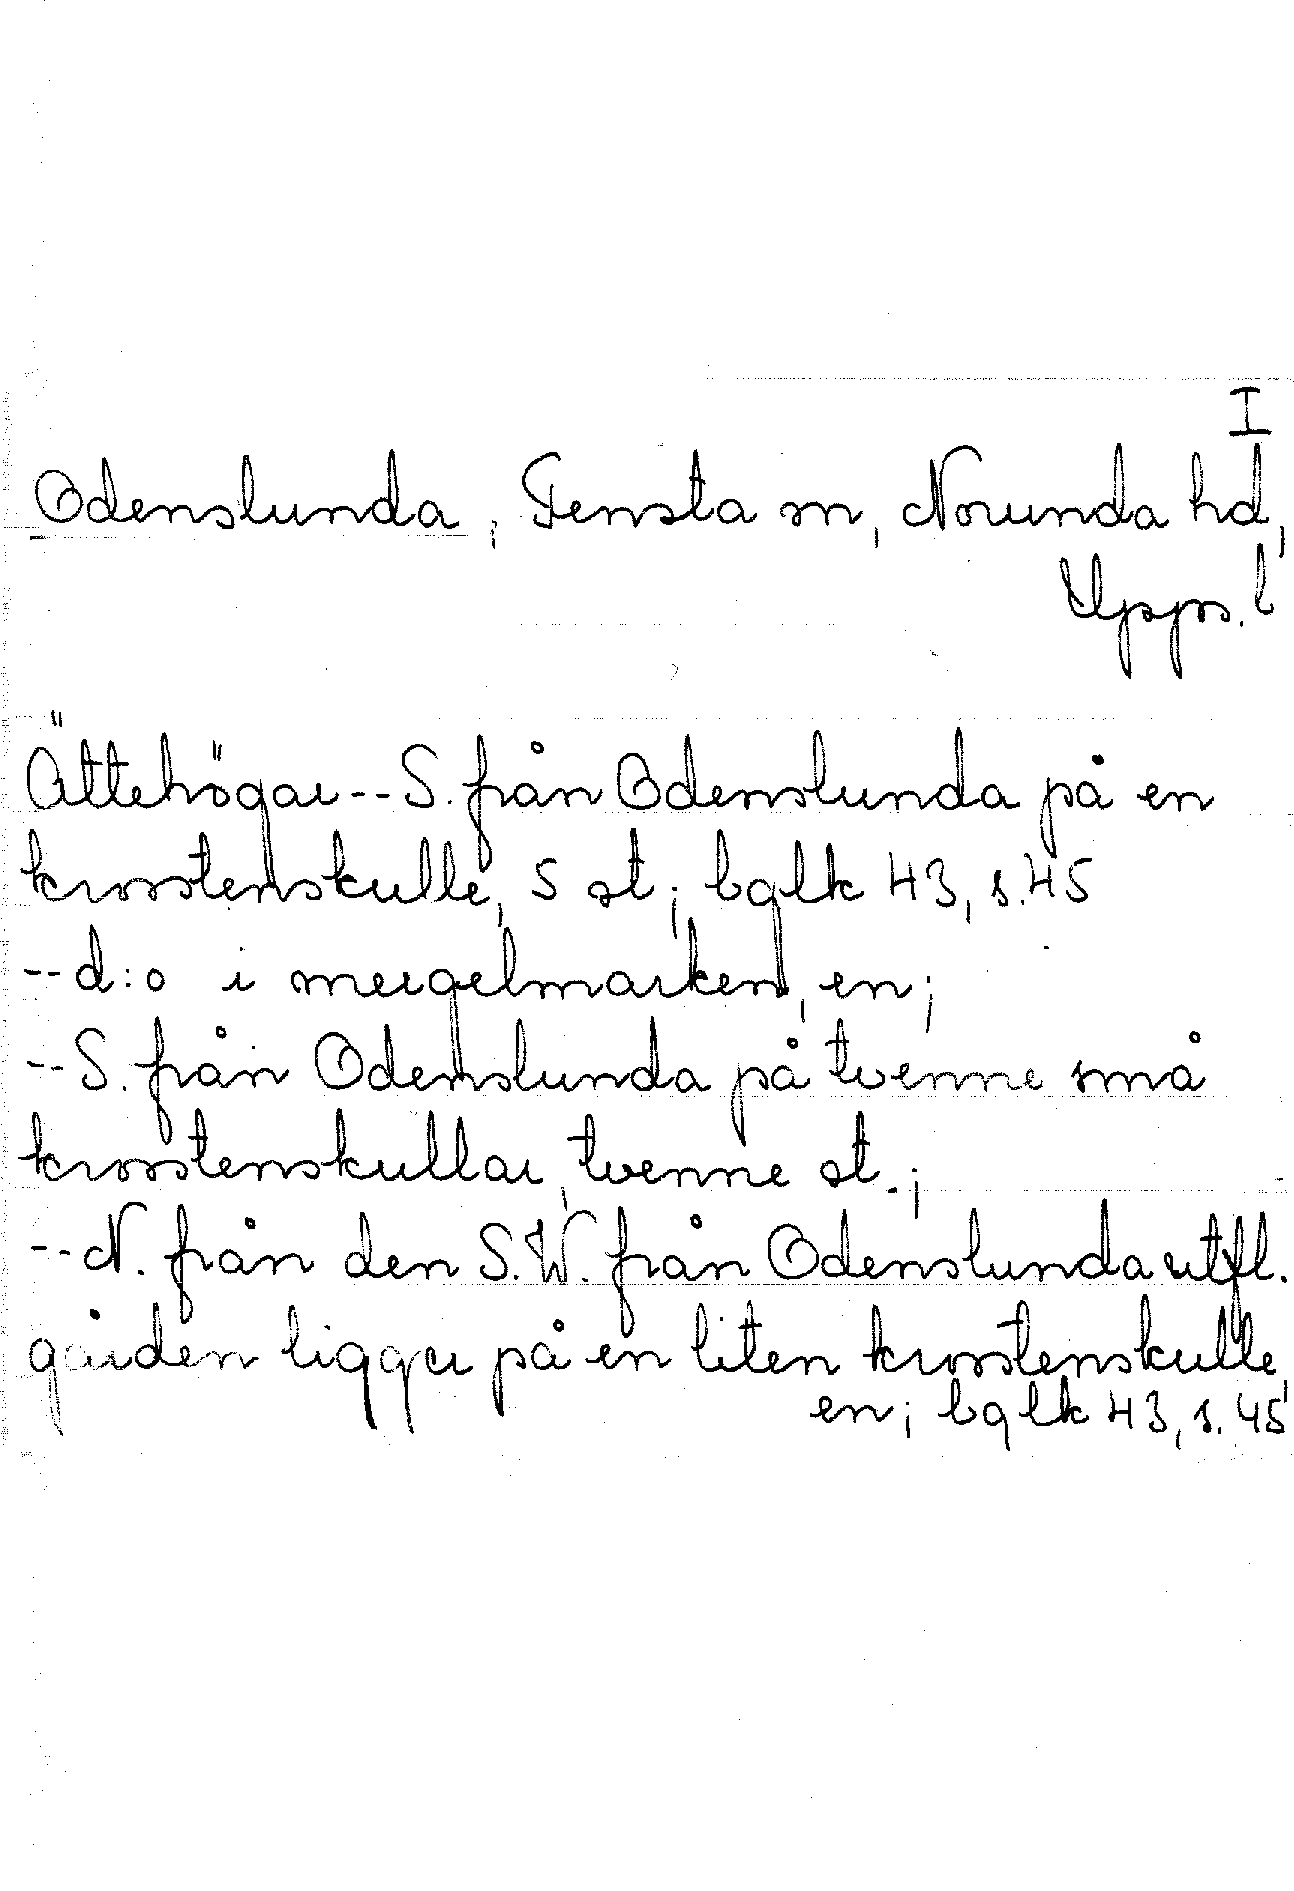 I
Odenslunda, Tensta sn, Norunda hd,
Upps. l
Ättehögar--S. från Odenslunda på en
krosstenskulle, 5 st; bglk 43, s. 45
--d:o i mergelmarken, en;
--S. från Odenslunda på tvenne små
krosstenskullar, tvenne st.;
--N. från den S.W. från Odenslunda utfl.
gården ligger på en liten krosstenskulle,
en; bglk 43, s. 45